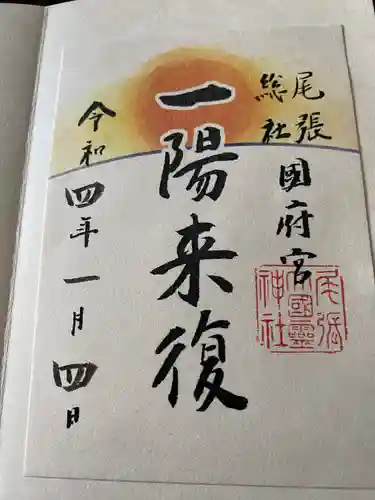 尾張
総社
國府宮
一陽来復
令和四年一月四日
尾張
大國霊
神社